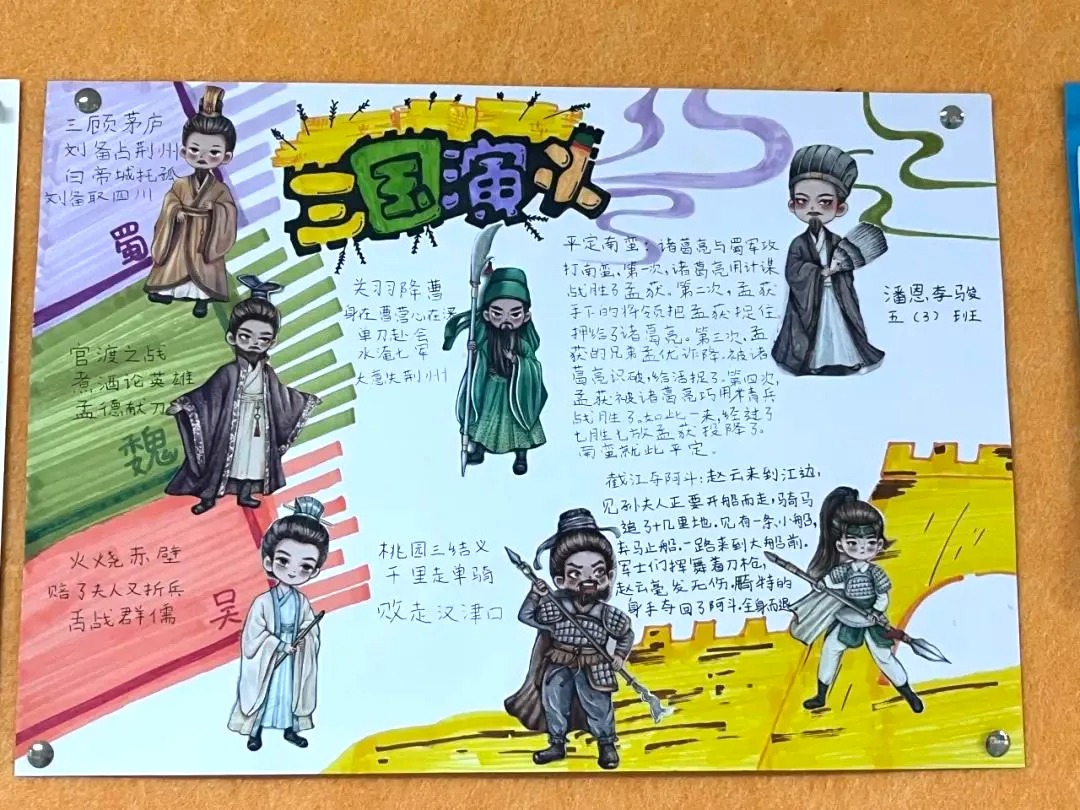 三国演义
三顾茅庐
刘备占荆州
白帝城托孤
刘备取四川
蜀
官渡之战
煮酒论英雄
孟德献刀
魏
火烧赤壁
赔了夫人又折兵
舌战群儒
吴
关羽降曹
身在曹营心在汉
单刀赴会
水淹七军
大意失荆州
桃园三结义
千里走单骑
败走汉津口
平定南蛮：诸葛亮与蜀军攻
打南蛮，第一次，诸葛亮用计谋
战胜了孟获。第二次，孟获
手下的将领把孟获捉住
押给了诸葛亮。第三次，孟
获的兄弟孟优诈降，被诸
葛亮识破，给活捉了。第四次，
孟获被诸葛亮巧用精兵
战胜了。如此一来，经过了
七胜七放孟获投降了。
南蛮就此平定。
截江夺阿斗：赵云来到江边，
见孙夫人正要开船而走，骑马
追了十几里地，见有一条小船，
弃马上船，一路来到大船前。
军士们挥舞着刀枪，
赵云毫发无伤，
身手夺回了阿斗，全身而退
潘恩，李骏
五（3）班